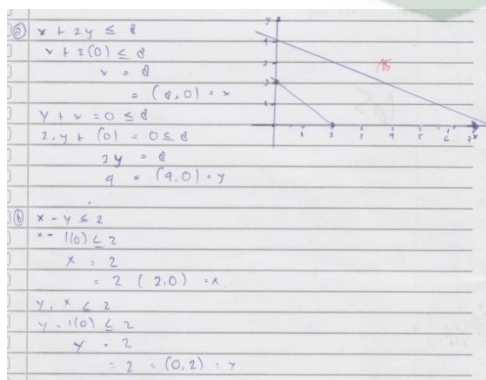 x + 2y ≤ 8
x + 2(0) ≤ 8
x = 8
= (8,0) = x
y + x = 0 ≤ 8
2.y + (0) = 0 ≤ 8
2y = 8
4 = (4,0) = y
x - y ≤ 2
x - 1(0) ≤ 2
x = 2
= 2 (2,0) = x
y, x ≤ 2
y - 1(0) ≤ 2
y = 2
= 2 = (0,2) = y
y
4
3
2
1
1 2 3 4 5 6 7 x